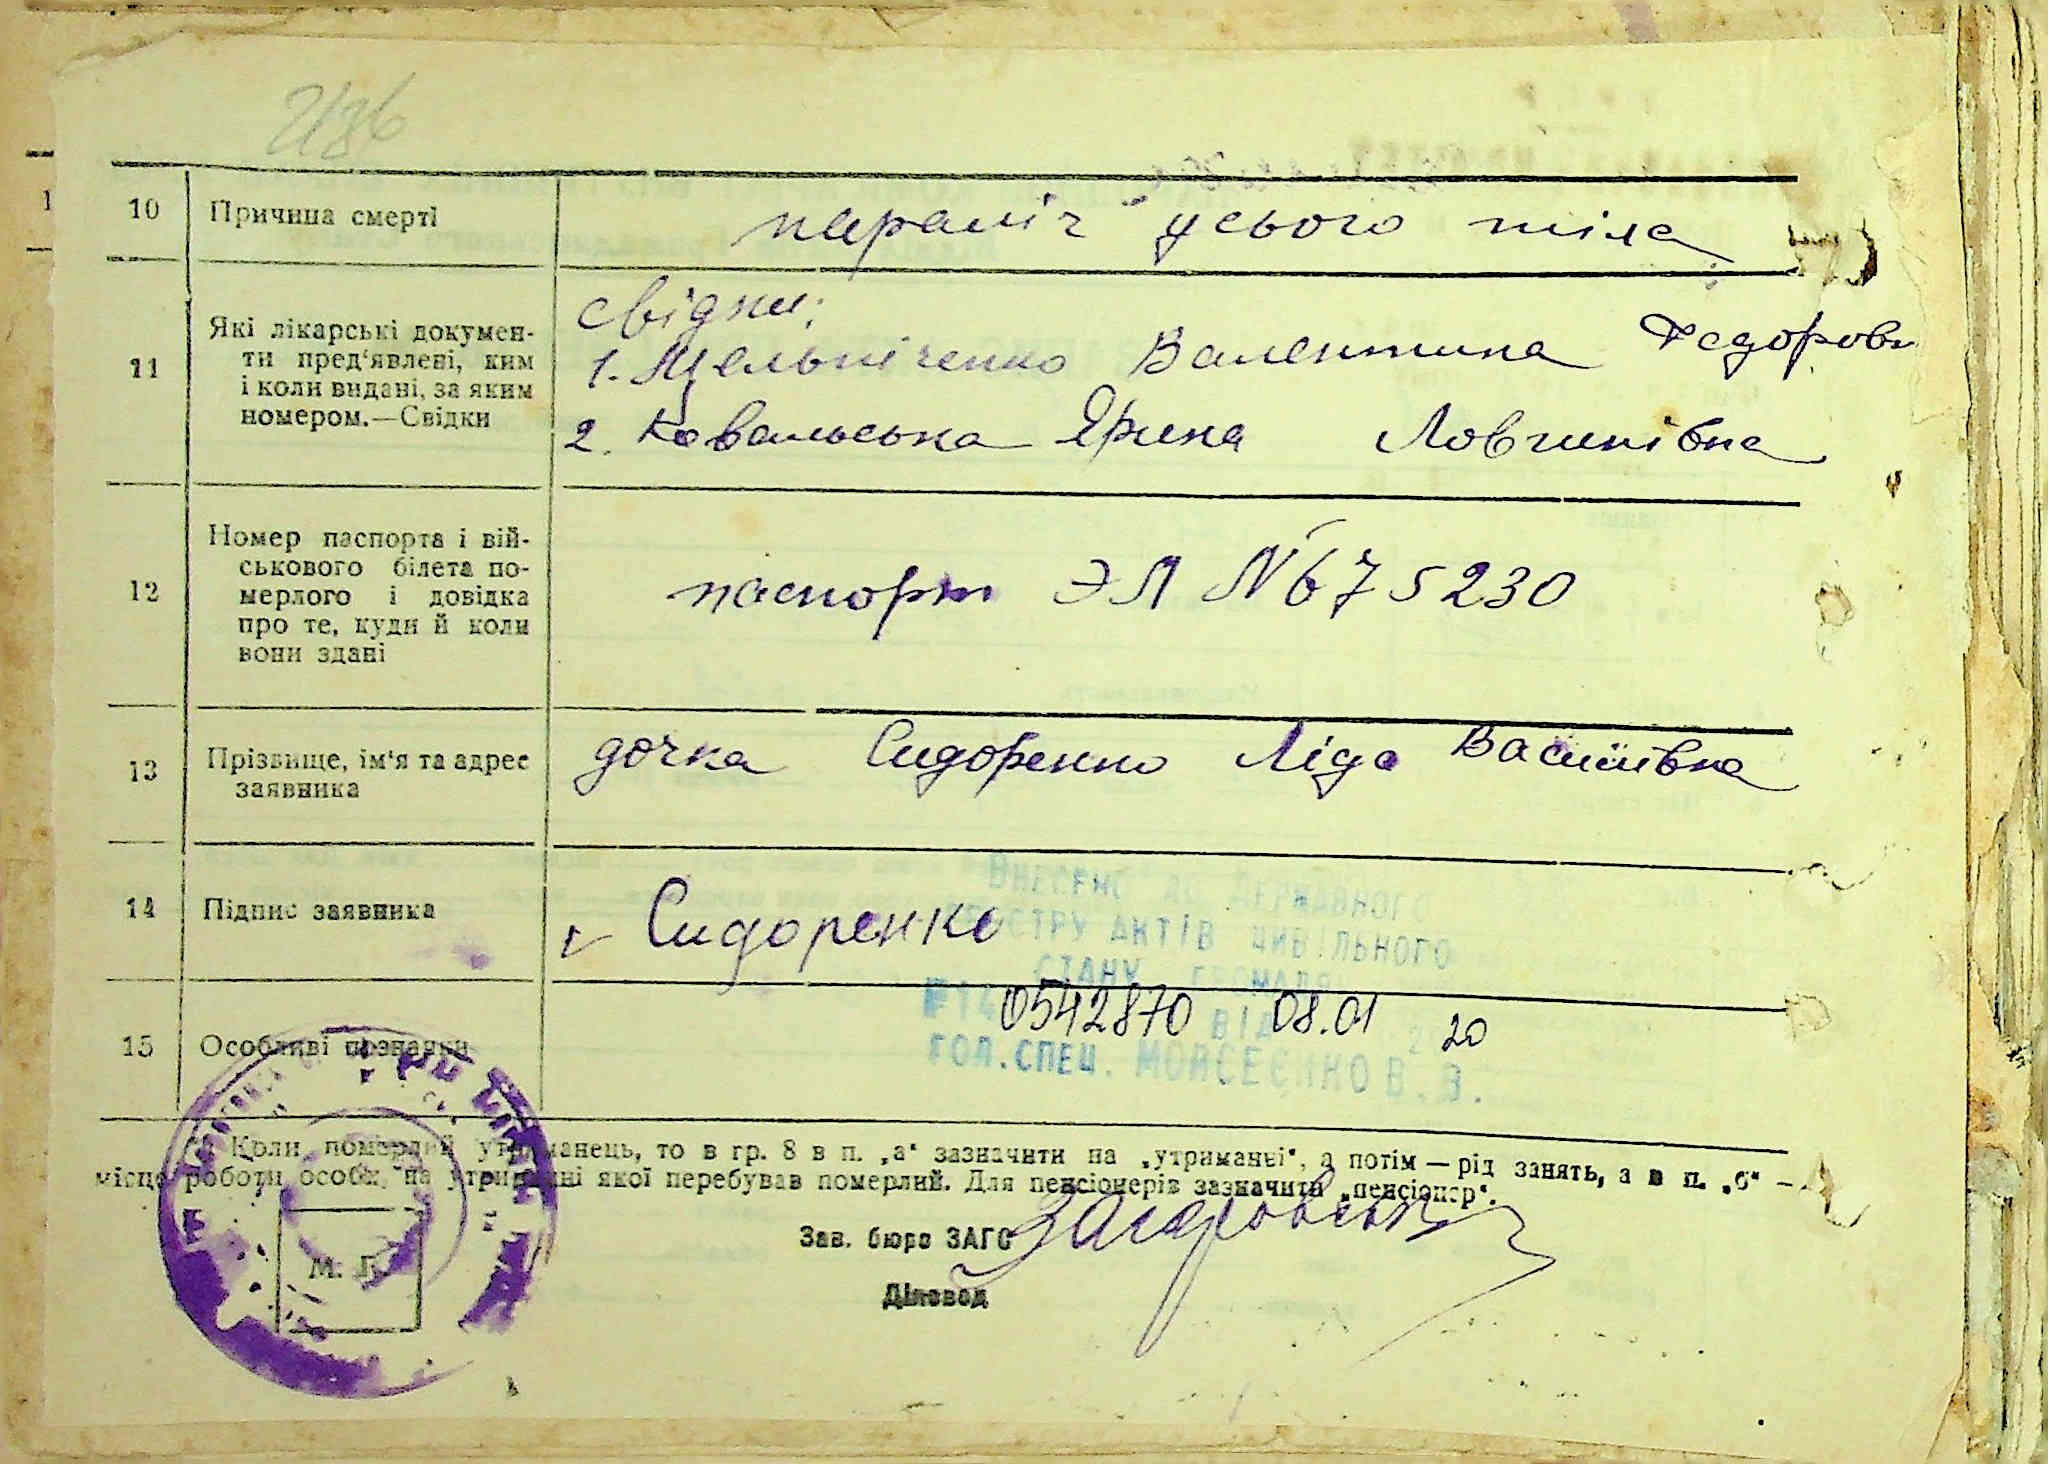 10 Причина смерті параліч усього тіла
11 Які лікарські докумен-
ти пред'явлені, ким
і коли видані, за яким
номером.—Свідки
свідки:
1. Мельніченко Валентина Федоровн
2. Ковальська Ярина Ловгинівна
12 Номер паспорта і вій-
ськового білета по-
мерлого і довідка
про те, куди й коли
вони здані
паспорт ЭЛ № 675230
13 Прізвище, ім'я та адрес
заявника
дочка Сидоренко Ліда Василівна
14 Підпис заявника
Сидоренко
ВНЕСЕНО ДО ДЕРЖАВНОГО
РЕЄСТРУ АКТІВ ЦИВІЛЬНОГО
СТАНУ ГРОМАДЯН
15 Особливі позначки
№ 14 0542870 ВІД 08.01 20
ГОЛ.СПЕЦ. МОЙСЕЄНКО В.В.
*) Коли померлий утриманець, то в гр. 8 в п. „а“ зазначити на „утриманні“, а потім — рід занять, а в п. „б“ —
місце роботи особи, на утриманні якої перебував померлий. Для пенсіонерів зазначити „пенсіонер“.
Зав. бюро ЗАГС
М. П.
Діловод